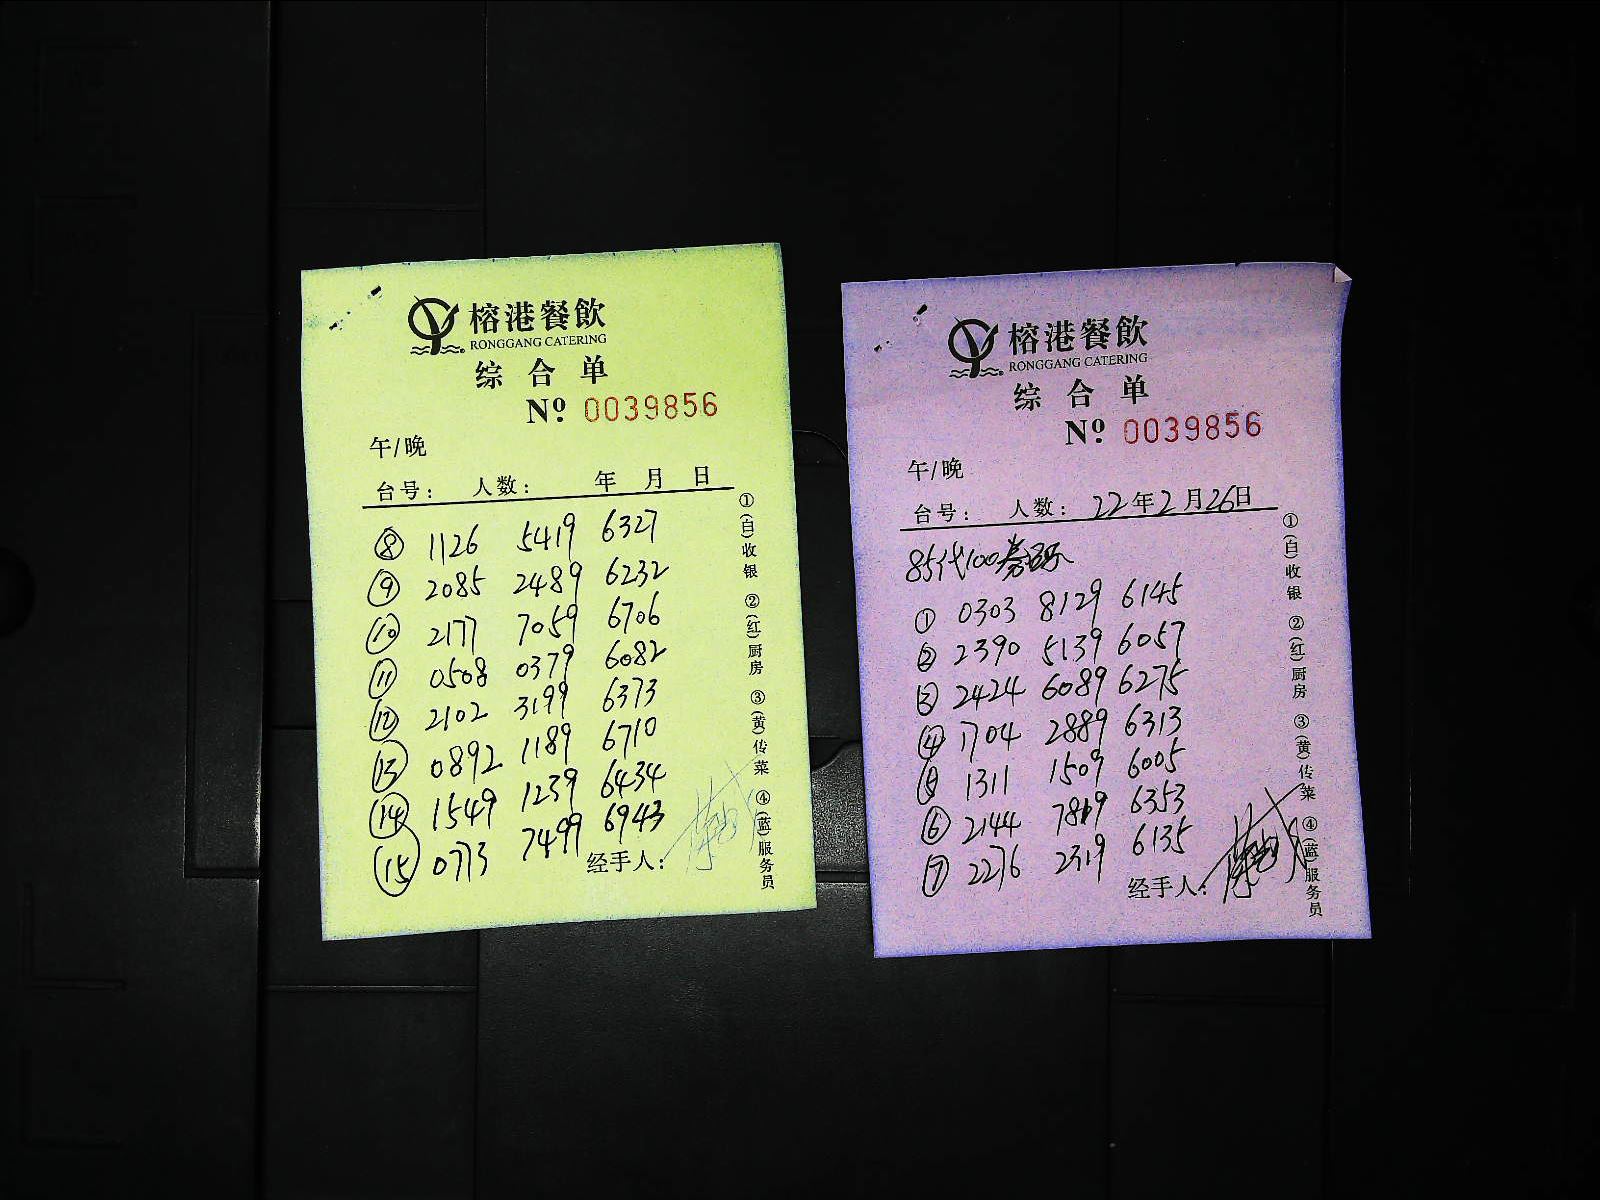 榕港餐飲
RONGGANG CATERING
综合单
Nº 0039856
午/晚
台号： 人数： 年 月 日
⑧ 1126 5419 6327
⑨ 2085 2489 6232
⑩ 2177 7059 6706
⑪ 0508 0379 6082
⑫ 2102 3199 6373
⑬ 0892 1189 6710
⑭ 1549 1239 6434
⑮ 0773 7499 6943
经手人：
①(白)收银 ②(红)厨房 ③(黄)传菜 ④(蓝)服务员
榕港餐飲
RONGGANG CATERING
综合单
Nº 0039856
午/晚
台号： 人数： 22年2月26日
85代100券码
① 0303 8129 6145
② 2390 5139 6057
③ 2424 6089 6275
④ 1704 2889 6313
⑤ 1311 1509 6005
⑥ 2144 7819 6353
⑦ 2276 2319 6135
经手人：
①(白)收银 ②(红)厨房 ③(黄)传菜 ④(蓝)服务员